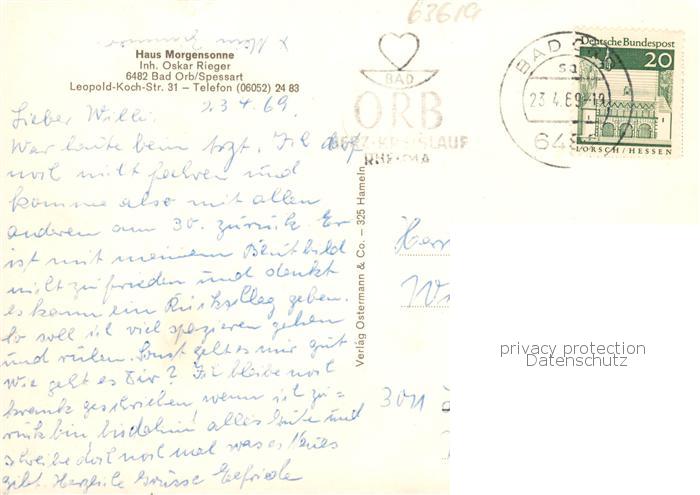 63619
x Mein Zimmer
Haus Morgensonne
Inh. Oskar Rieger
6482 Bad Orb/Spessart
Leopold-Koch-Str. 31 — Telefon (06052) 24 83
23.4.69.
Lieber Willi.
War heute beim Arzt. Ich darf
noch nicht fahren und
komme also mit allen
anderen am 30. zurück. Er
ist mit meinem Blutbild
nicht zufrieden und denkt
es kann ein Rückschlag geben.
So soll ich viel spazieren gehen
und ruhen. Sonst geht es mir gut.
Wie geht es Dir? Ich bleibe noch
krank geschrieben wenn ich zu=
rück bin, bis dahin alles Gute und
schreibe doch noch mal was es Neues
gibt. Herzliche Grüsse Elfriede
BAD
ORB
HERZ-KREISLAUF
RHEUMA
BAD
23.4.69-19
648
Deutsche Bundespost
20
LORSCH/HESSEN
Verlag Ostermann & Co. — 325 Hameln
Herr
Wi
3011
privacy protection
Datenschutz